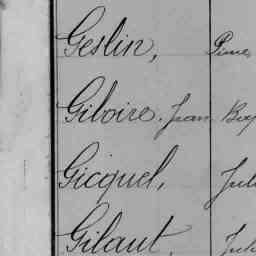 Geslin, Pierre
Giboire. Jean Bap
Gicquel, Juli
Gilaut, Juli